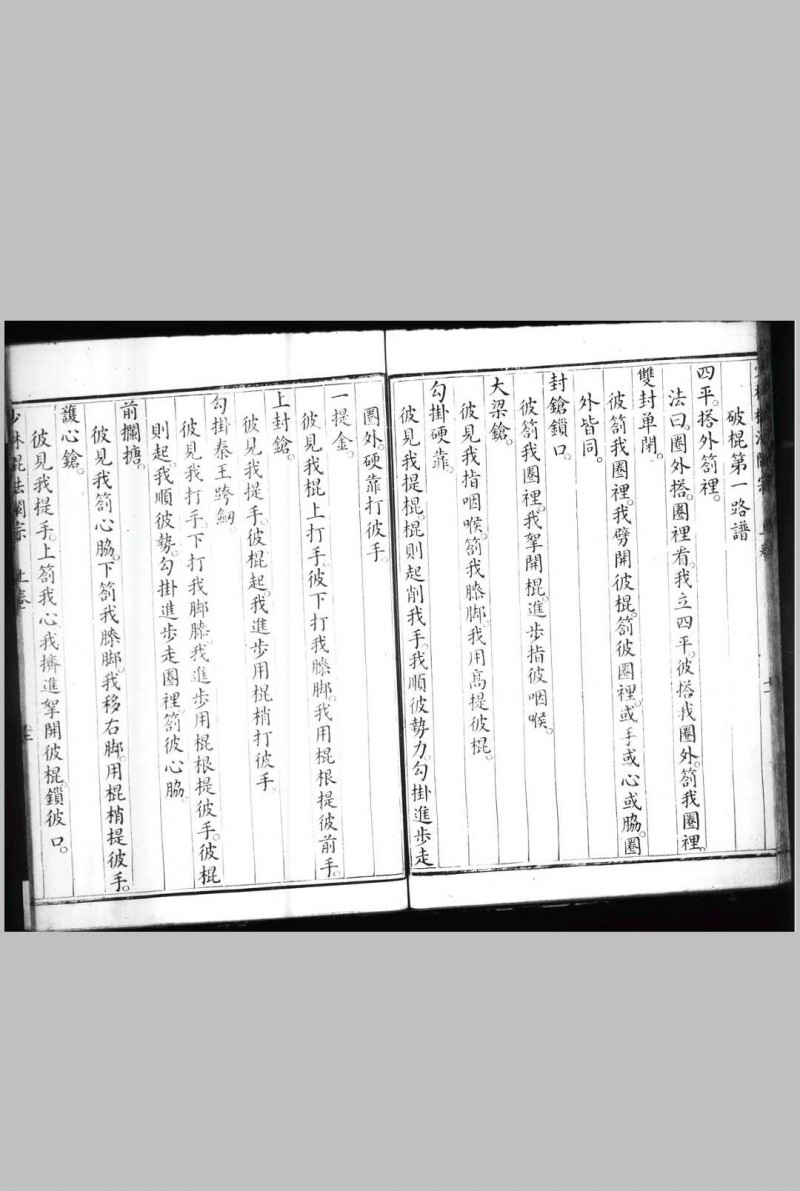 破棍第一路譜
四平。搭外劄裡。
法曰。圈外搭。圈裡看。我立四平。彼搭我圈外。劄我圈裡。
雙封单閉。
彼劄我圈裡。我劈開彼棍。劄彼圈裡。或手或心或脇。圈
外皆同。
封鎗鎖口。
彼劄我圈裡。我拏開棍。進步指彼咽喉。
大梁鎗。
彼見我指咽喉。劄我膝脚。我用髙提彼棍。
勾掛硬靠。
彼見我提棍。棍則起削我手。我順彼勢力。勾掛進步走
圈外。硬靠打彼手。
一提金。
彼見我棍上打手。彼下打我膝脚。我用棍根提彼前手。
上封鎗。
彼見我提手。彼棍起。我進步用棍梢打彼手。
勾掛秦王跨劒。
彼見我打手。下打我脚膝。我進步用棍根提彼手。彼棍
則起。我順彼勢。勾掛進步走圈裡。劄彼心脇。
前攔搪。
彼見我劄心脇。下劄我膝脚。我移右脚。用棍梢提彼手。
護心鎗。
彼見我提手。上劄我心。我擠進拏開彼棍。鎖彼口。
少林棍法闡宗 上卷